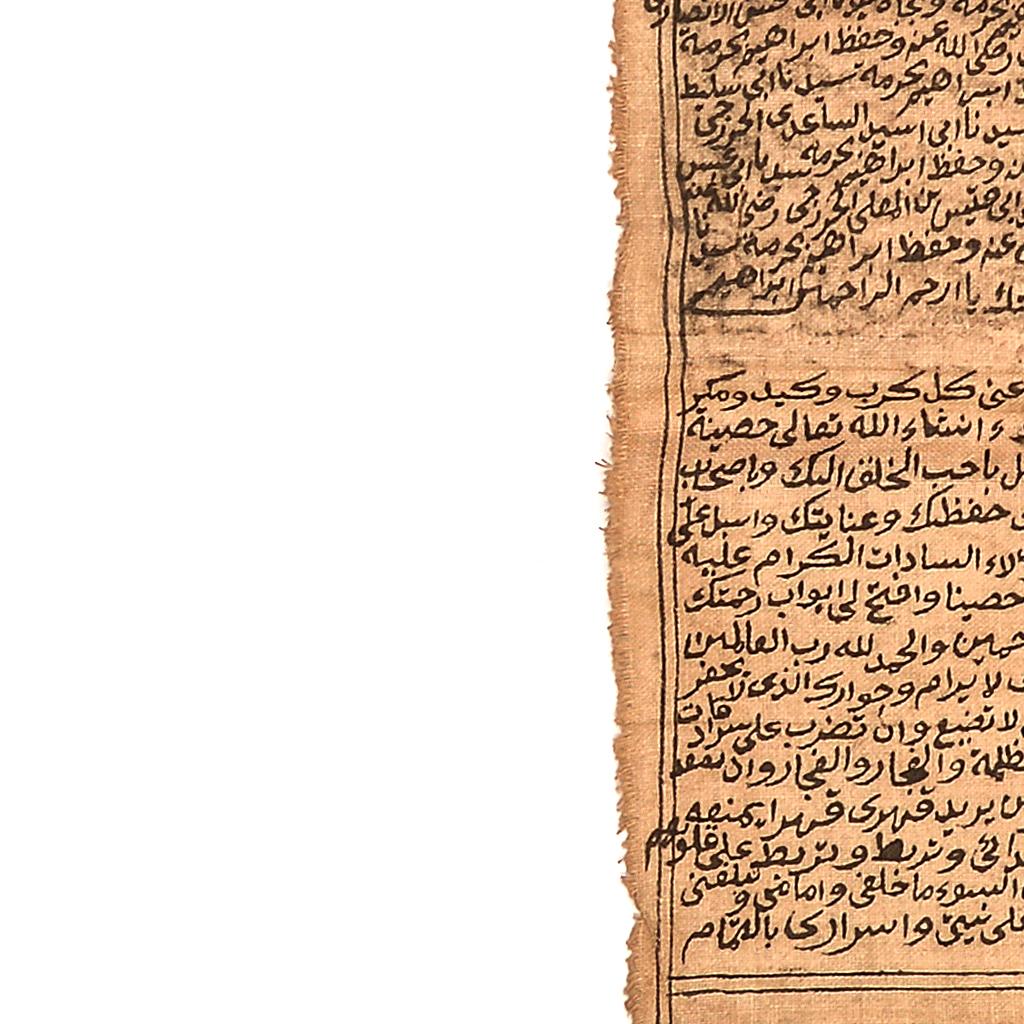 بحرمة وبجاه سيدنا ابى قيس الانصارى
رضى الله عنه وحفظ ابراهيم بحرمة
ابراهيم بحرمة سيدنا ابى سليط
سيدنا ابى اسيد الساعدى الخزرجى
وحفظ ابراهيم بحرمة سيدنا ابى عبس
ابى قيس بن المعلى الخزرجى رضى الله عنه
عنه وحفظ ابراهيم بحرمة سيدنا
يا ارحم الراحمين ابراهيم
عنى كل كرب وكيد ومكر
ء انشاء الله تعالى حصينة
باحب الخلق اليك وباصحاب
حفظك وعنايتك واسبل على
السادات الكرام عليه
حصينا وافتح لى ابواب رحمتك
والحمد لله رب العالمين
لا يرام وجوارك الذى لا يخفر
لا تضيع وان تضرب على سرادقات
والفجار والفجار وان تعقد
يريد قهرى قهرا يمنعه
وتربط وتربط على قلوبهم
السوء ما خلفى وامامى وتبلغنى
نيتى واسرارى بالتمام